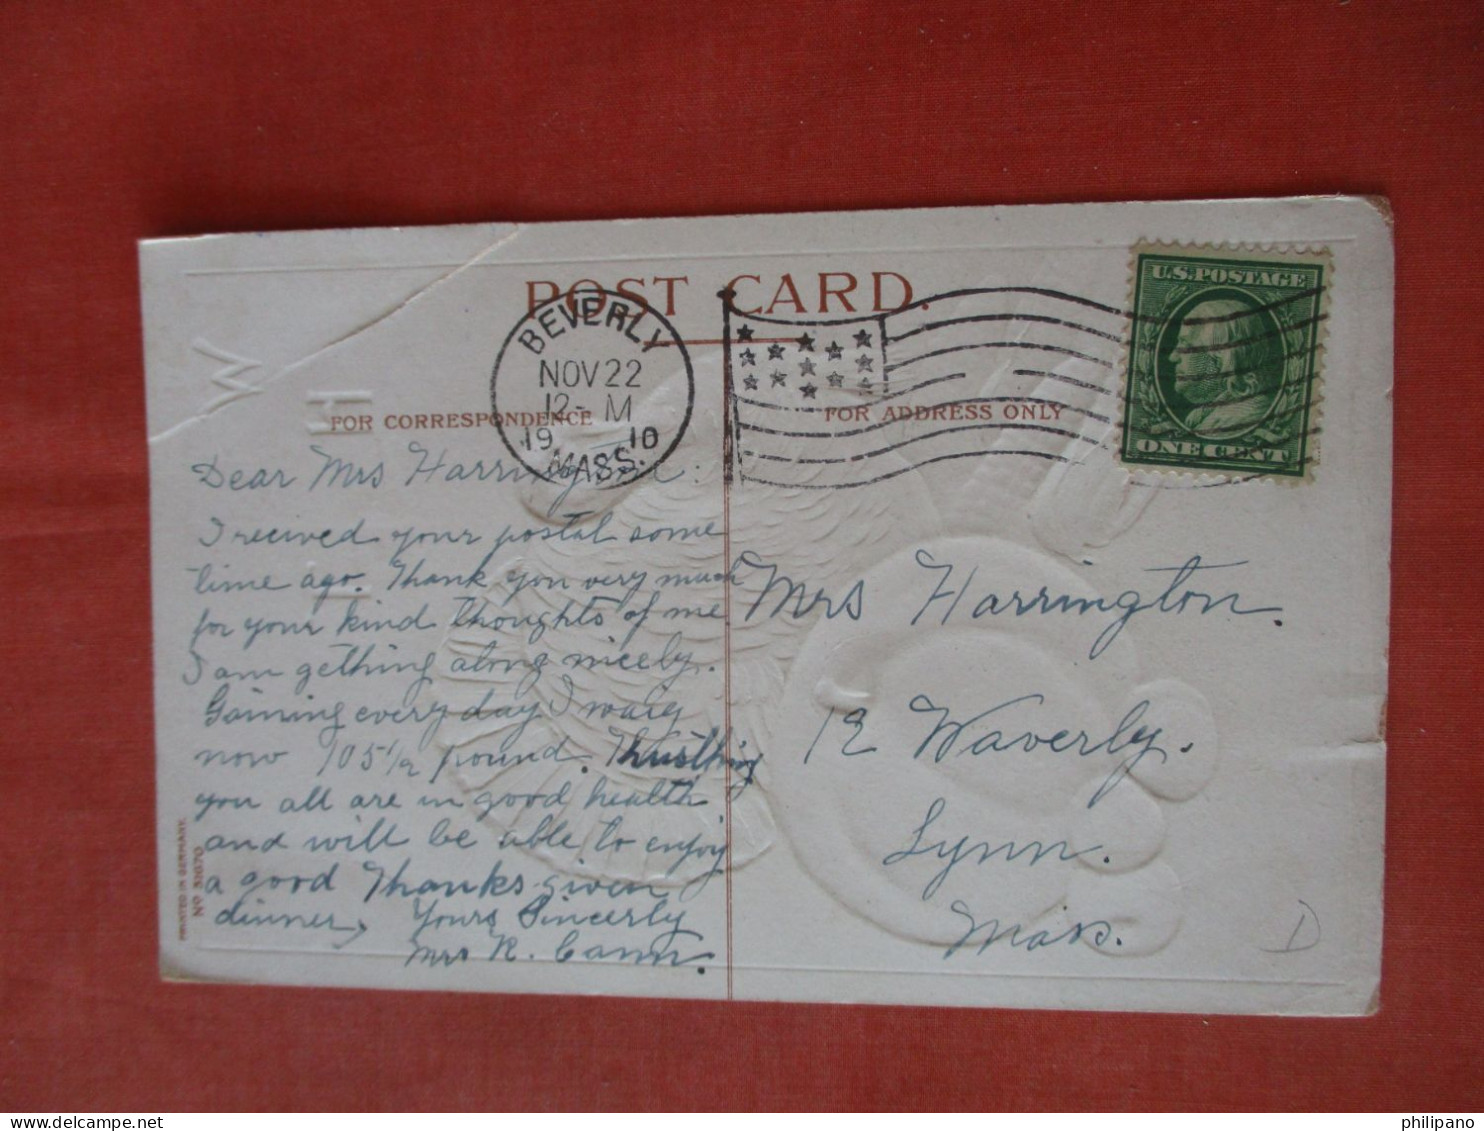 POST CARD.
BEVERLY
NOV 22
12-M
19 10
MASS.
U.S. POSTAGE
ONE CENT
FOR CORRESPONDENCE
FOR ADDRESS ONLY
Dear Mrs Harrington:
I received your postal some
time ago. Thank you very much
for your kind thoughts of me
I am gething along nicely.
Gaining every day I waig
now 105 1/2 pound. Thrusthing
you all are in good health
and will be able to enjoy
a good Thanks given
dinner,
Yours Sincerly
Mrs R. Cann.
Mrs Harrington.
12 Waverly.
Lynn.
Mass.
D
PRINTED IN GERMANY.
No 31070
philipano